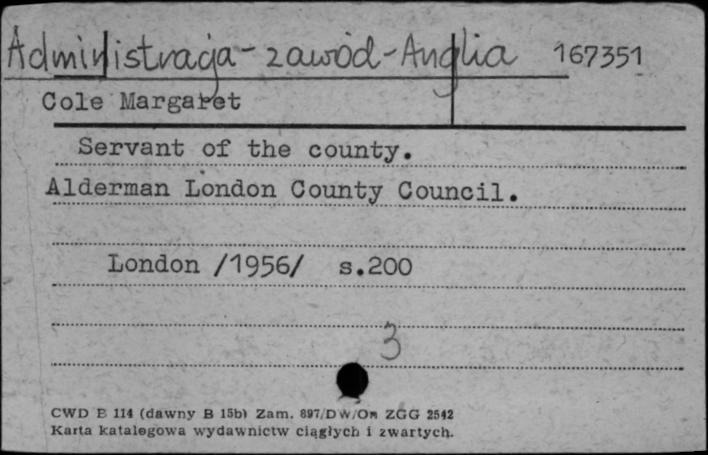 Administracja - zawód - Anglia 167351
Cole Margaret
Servant of the county.
Alderman London County Council.
London /1956/ s.200
3
CWD E 114 (dawny B 15b) Zam. 897/DW/On ZGG 2542
Karta katalogowa wydawnictw ciągłych i zwartych.